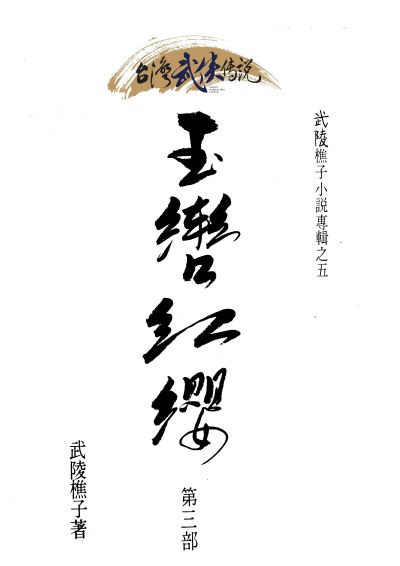 台灣武俠傳說
武陵樵子小說專輯之五
玉轡紅纓
第三部
武陵樵子著